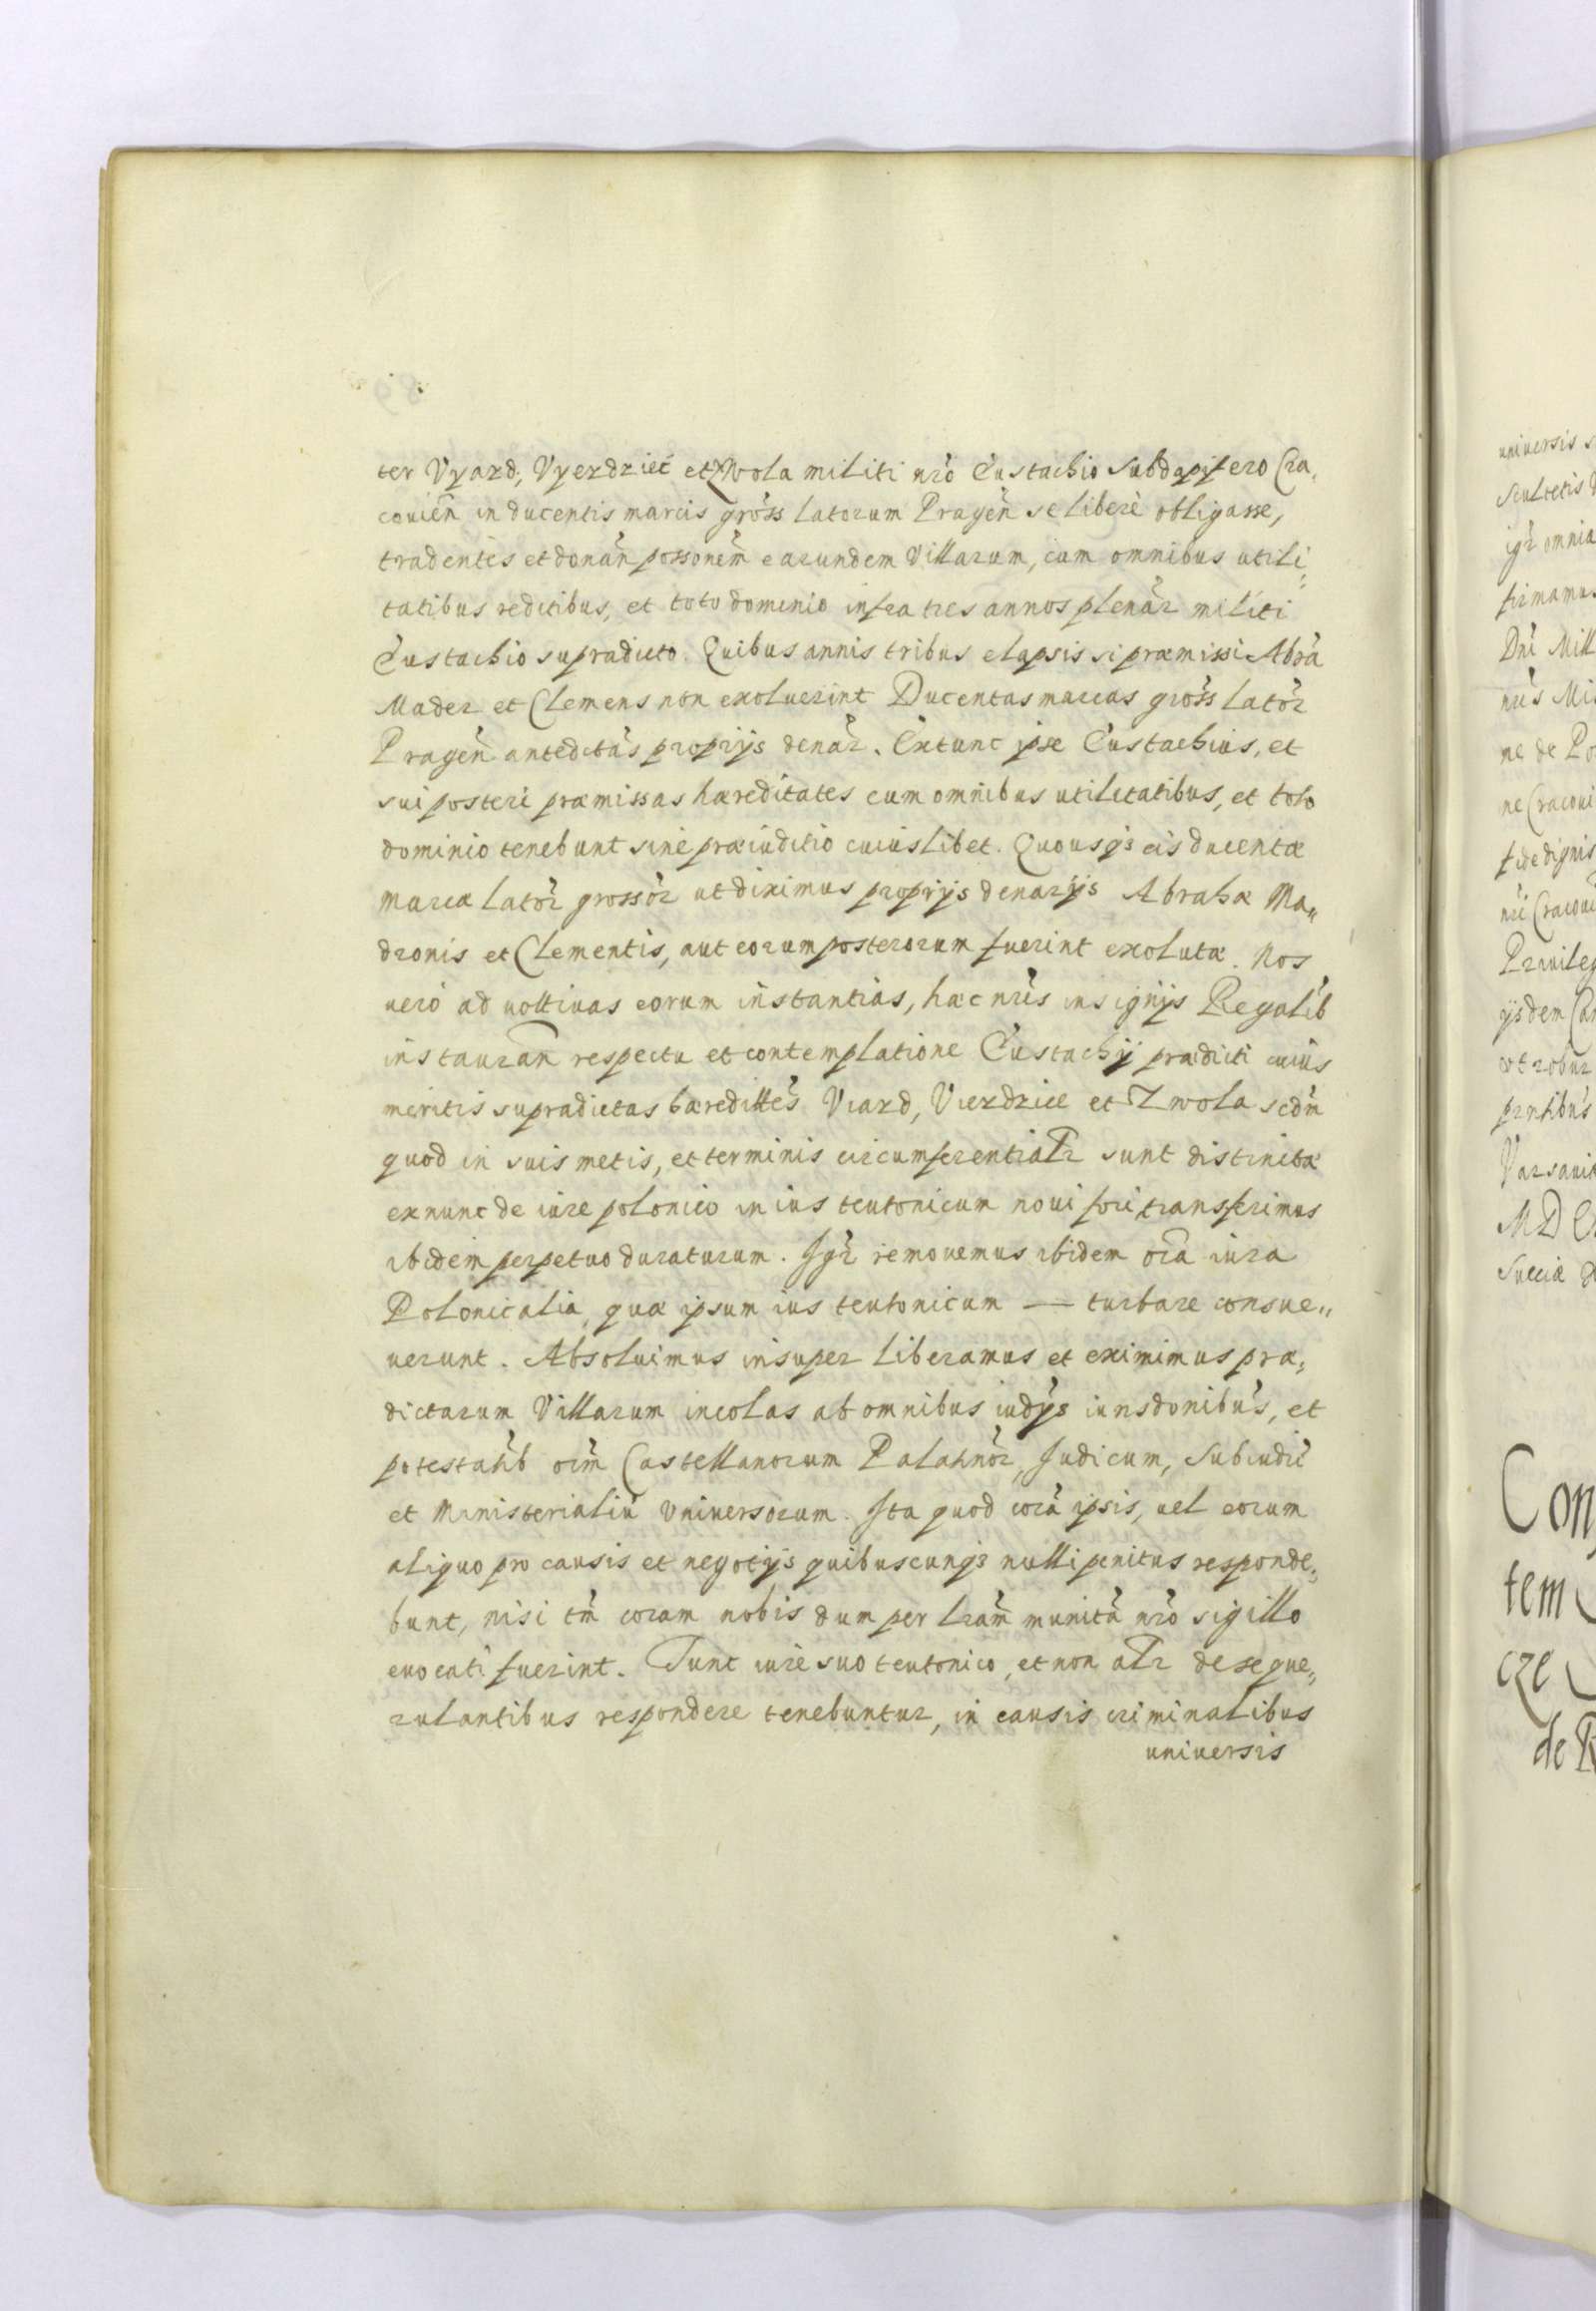 ter Vyard, Vyerdziec et Zwola militi nrõ Eustachio Subdapifero Cra,
couien̄ in ducentis marcis gross latorum Pragen̄ se liberè obligasse,
tradentes et donan̄ possonem̄ earundem Villarum, cum omnibus utili,,
tatibus reditibus, et toto dominio infra tres annos plenar̃ militi
Eustachio supradicto. Quibus annis tribus elapsis si præmissi Abrã
Mader et Clemens non exoluerint Ducentas marcas gross lator̃
Pragen̄ antedctas̃ proprijs denar̃. Extunc ipse Eustachius, et
sui posteri præmissas hæreditates cum omnibus utilitatibus, et toto
dominio tenebunt sine præiuditio cuiuslibet. Quousqз eis ducentæ
marcæ lator̃ grossor̃ ut diximus proprijs denarijs Abrahæ Ma,,
dronis et Clementis, aut eorum posterorum fuerint exolutæ. Nos
uero ad uottiuas eorum instantias, hac nrĩs insignijs Regalib̃
instauran̄ respectu et contemplatione Eustachij prædicti cuius
meritis supradictas hæredittẽs Viard, Vierdziec et Zwola sedñ
quod in suis metis, et terminis circumferentialr̃ sunt distinctæ
ex nunc de iure polonico in ius teutonicum noui fori transferimus
ibidem perpetuo duraturum. Igr̃ remouemus ibidem oĩa iura
Polonicalia, quæ ipsum ius teutonicum — turbare consue,,
uerunt. Absoluimus insuper liberamus et eximimus præ,
dictarum Villarum incolas ab omnibus iudijs iurisdonibũs, et
potestatib̃ oĩm Castellanorum Palatinor̃, Judicum, Subiudic̃
et Ministerialiũ Vniuersorum. Ita quod corã ipsis, uel eorum
aliquo pro causis et negotijs quibuscunqз nulli penitus responde,,
bunt, nisi tm̃ coram nobis dum per lram̃ munitã nrõ sigillo
euocati fuerint. Tunc iure suo teutonico, et non alr̃ de se que,,
rulantibus respondere tenebuntur, in causis criminalibus
universis
universis
Scultetis
igr̃ omnia
firmamus
Dñi Mill
nrĩs
ne de
ne Cracoui
fidedignis
nrĩ Cracoui
Priuileg
ijsdem
et robur
prntibũs
Varsauiæ
Sueciæ
Con
tem
cze
de